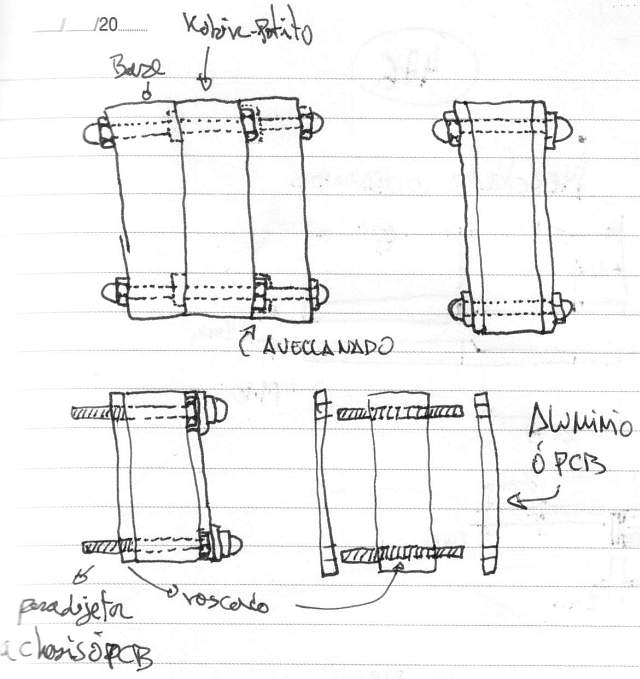 / /20
Base
AVELLANADO
ALUMINIO
Ó PCB
roscado
para sujetar
a chasis ó PCB